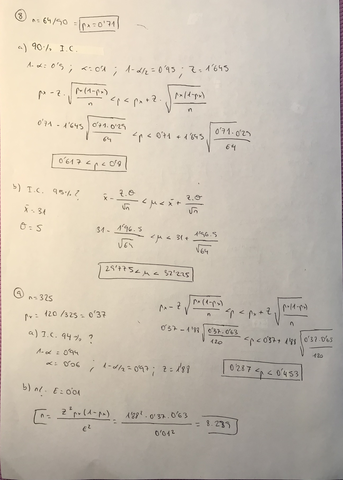 ⑧ n = 64/90 = p* = 0'71
a) 90% I.C.
1-α = 0'9 ; α = 0'1 ; 1-α/2 = 0'95 ; Z = 1'645
p* - Z · √(p*(1-p*)/n) < p < p* + Z · √(p*(1-p*)/n)
0'71 - 1'645 √(0'71·0'29/64) < p < 0'71 + 1'645 √(0'71·0'29/64)
0'617 < p < 0'8
b) I.C. 95% ?
x̄ - Z·σ/√n < μ < x̄ + Z·σ/√n
x̄ = 31
σ = 5
31 - 1'96·5/√64 < μ < 31 + 1'96·5/√64
29'775 < μ < 32'225
⑨ n = 325
p* = 120/325 = 0'37
a) I.C. 94% ?
1-α = 0'94
α = 0'06 ; 1-α/2 = 0'97 ; Z = 1'88
p* - Z √(p*(1-p*)/n) < p < p* + Z √(p*(1-p*)/n)
0'37 - 1'88 √(0'37·0'63/120) < p < 0'37 + 1'88 √(0'37·0'63/120)
0'287 < p < 0'453
b) n? E = 0'01
n = Z² p* (1-p*)/E² = 1'88² · 0'37 · 0'63/0'01² = 8.239